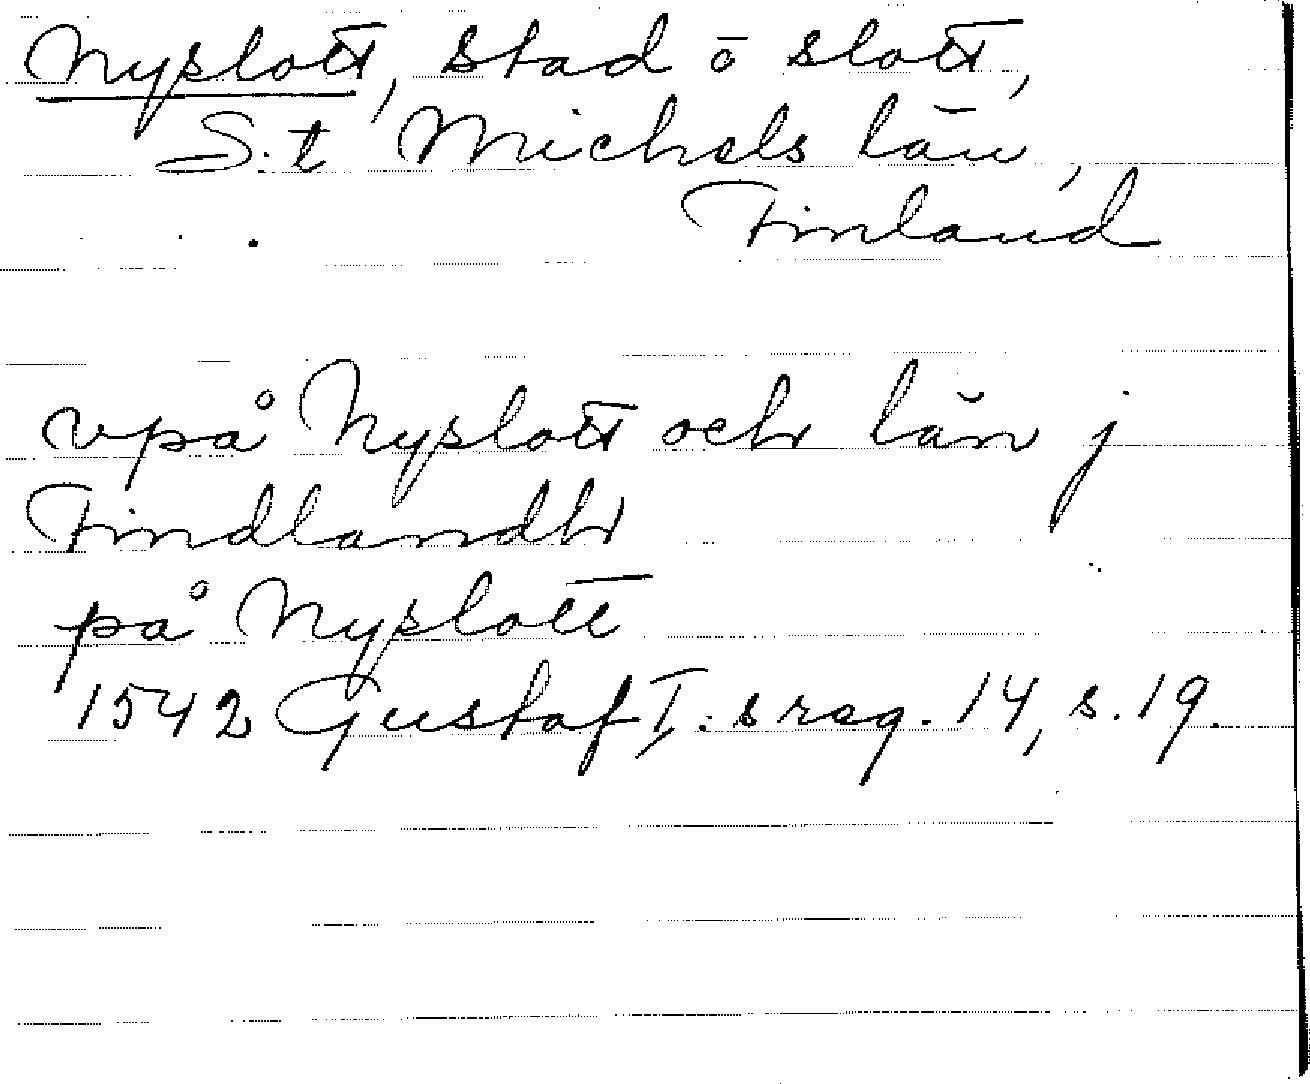 Nyslott, stad ō slott,
S.t Michels län,
Finland
vpå Nyslott och län j
Findlandh
på Nyslott
1542 Gustaf I:s reg. 14, s. 19.